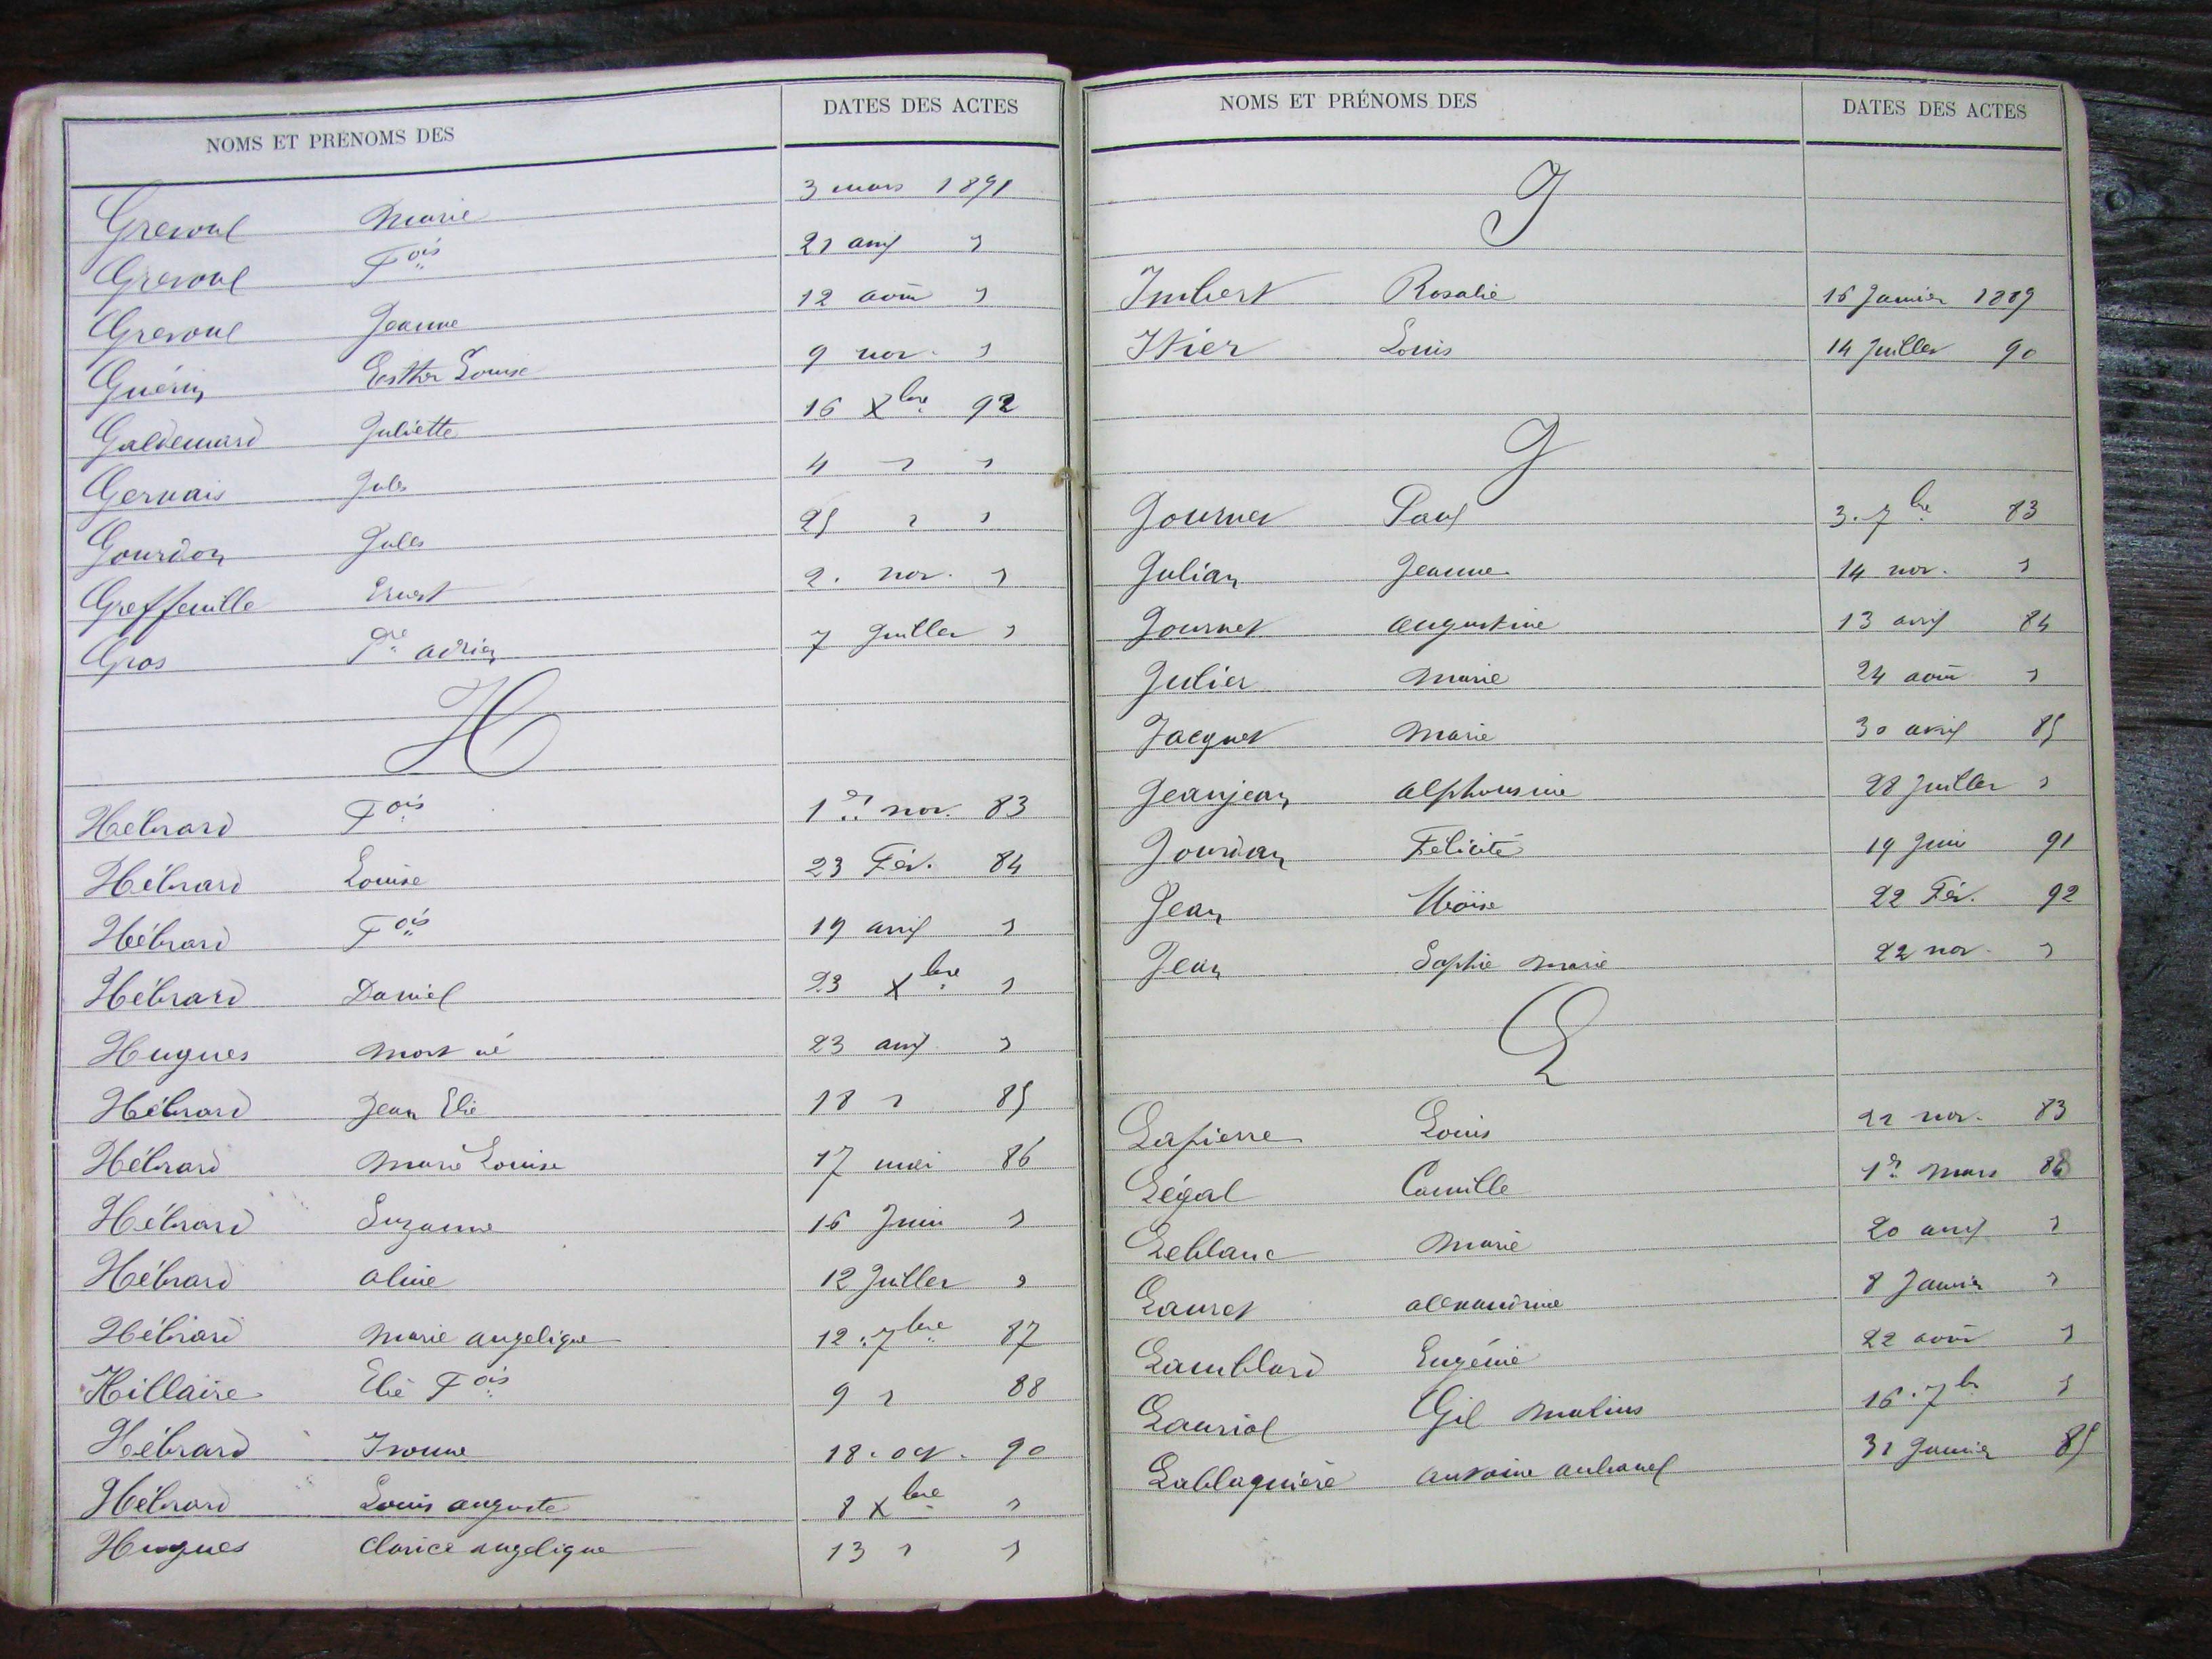 NOMS ET PRÉNOMS DES DATES DES ACTES
Gresoul Marie 3 mars 1891
Gresoul Fois 21 avril "
Gresoul Jeanne 12 août "
Guérin Esther Louise 9 nov. "
Galdemard Juliette 16 Xbre 92
Gervais Jules 4 " "
Gourdon Jules 25 " "
Greffeuille Ernest 2. nov. "
Gros Pre adrien 7 Juillet "
H
Hébrard Fois 1er nov. 83
Hébrard Louise 23 Fév. 84
Hébrard Fois 19 avril "
Hébrard Daniel 23 Xbre "
Hugues mort né 23 avril "
Hébrard Jean Elie 18 " 85
Hébrard Marie Louise 17 mai 86
Hébrard Suzanne 16 Juin "
Hébrard aline 12 Juillet "
Hébrard Marie angelique 12. 7bre 87
Hillaire Elie Fois 9 " 88
Hébrard Ivonne 18. oct. 90
Hébrard Louis auguste 8 Xbre "
Hugues Clarice angelique 13 " "
NOMS ET PRÉNOMS DES DATES DES ACTES
I
Imbert Rosalie 16 Janvier 1889
Itier Louis 14 Juillet 90
J
Journet Paul 3. 7bre 83
Julian Jeanne 14 nov. "
Journet augustine 13 avril 84
Julier Marie 24 août "
Jacquet Marie 30 avril 85
Jeanjean alphonsine 28 Juillet "
Jourdan Félicité 19 Juin 91
Jean Moïse 22 Fév. 92
Jean Sophie Marie 22 nov. "
L
Lapierre Louis 22 nov. 83
Légal Camille 1er Mars 84
Leblanc Marie 20 avril "
Lauret alexandrine 8 Janvier "
Lamblard Eugénie 22 août "
Lauriol Gil 16. 7bre "
Lablaquière antoine 31 Janvier 85